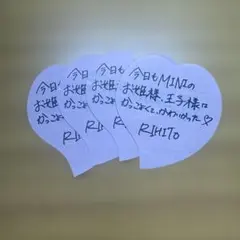 今日
お姫
かっこよ
RI
今日
お姫
かっこよ
R
今日も
お姫
かっこよ
R
今日もMINIの
お姫様、王子様は
かっこよくて、かわいかった♡
RIHITO